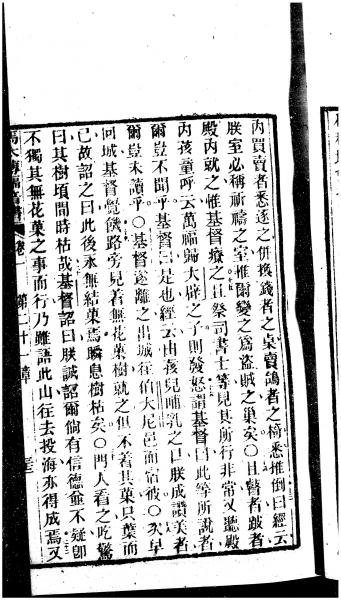 內買賣者悉逐之併換錢者之桌賣鴿者之椅悉推倒曰經云
朕室必稱祈禱之室惟爾變之爲盜賊之巢矣○且瞽者跛者
殿內就之惟基督療之且祭司書士等見其所行非常又聽殿
內孩童呼云萬福歸大辟之子則發怒謂基督曰此等所說者
爾豈不聞乎基督曰是也經云由孩兒哺乳之口朕成讚美者
爾豈未讀乎○基督遂離之出城往伯大尼邑而宿彼○次早
回城基督覺饑路旁見着無花菓樹就之但不着其菓只葉而
已故詔之曰此後永無結菓焉瞬息樹枯矣○門人看之吃驚
曰其樹頃間時枯哉基督詔曰朕誠詔爾倘有信德並不疑卽
不獨其無花菓之事而行乃雖語此山往去投海亦得成焉又
馬太傳福音書 卷一 第二十一章